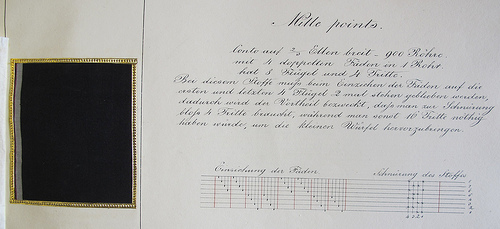 Mille points.
Conto auf ⅗ Ellen breit – 900 Röhre
mit 4 doppelten Fäden in 1 Rohr
hat 8 Flügel und 4 Tritte.
Bei diesem Stoffe muß beim Einziehen der Fäden auf die
ersten und letzten 4 Flügel 2 mal stehen geblieben werden,
dadurch wird der Vortheil bezweckt, daß man zur Schnürung
bloß 4 Tritte braucht, während man sonst 16 Tritte nöthig
haben würde, um die kleinen Würfel hervorzubringen.
Einreihung der Fäden
Schnürung des Stoffes